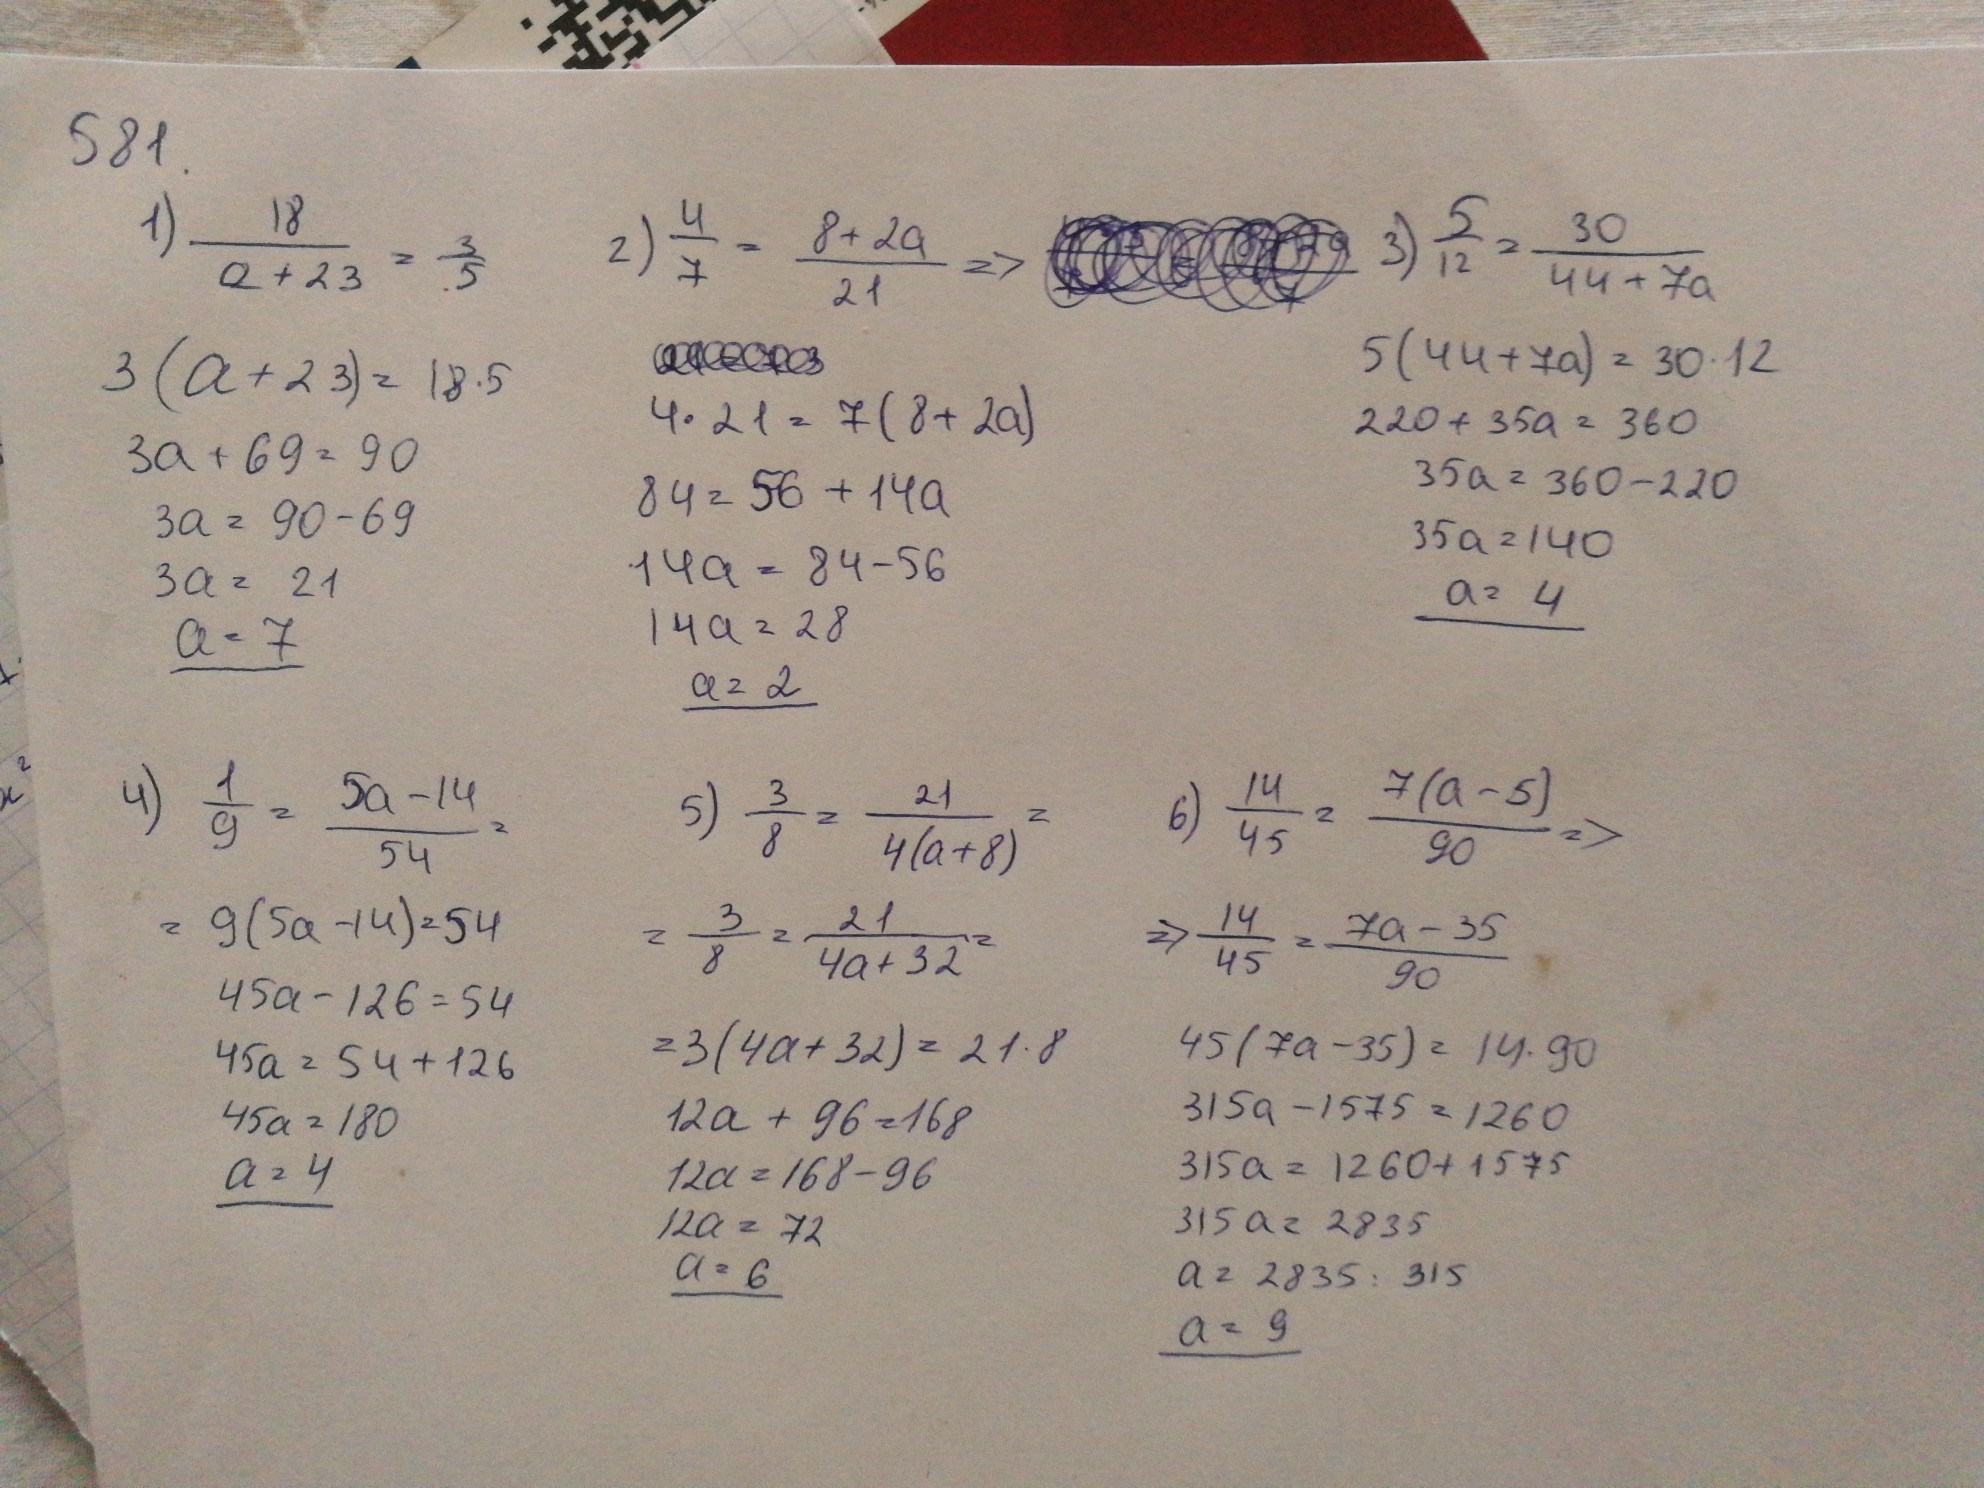 581.
1) 18/(a+23) = 3/5
3(a+23)= 18·5
3a+69=90
3a= 90-69
3a= 21
a=7
2) 4/7 = (8+2a)/21 =>
4·21=7(8+2a)
84=56+14a
14a=84-56
14a=28
a=2
3) 5/12=30/(44+7a)
5(44+7a)=30·12
220+35a=360
35a=360-220
35a=140
a=4
4) 1/9=(5a-14)/54=
=9(5a-14)=54
45a-126=54
45a=54+126
45a=180
a=4
5) 3/8=21/(4(a+8))=
=3/8=21/(4a+32)=
=3(4a+32)=21·8
12a+96=168
12a=168-96
12a=72
a=6
6) 14/45=(7(a-5))/90=>
=>14/45=(7a-35)/90
45(7a-35)=14·90
315a-1575=1260
315a=1260+1575
315a=2835
a=2835:315
a=9